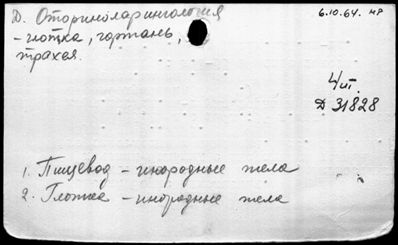 Д. Оториноларингология
6.10.64.
- глотка, гортань,
трахея.
4
Д 31828
1. Пищевод - инородные тела
2. Глотка - инородные тела